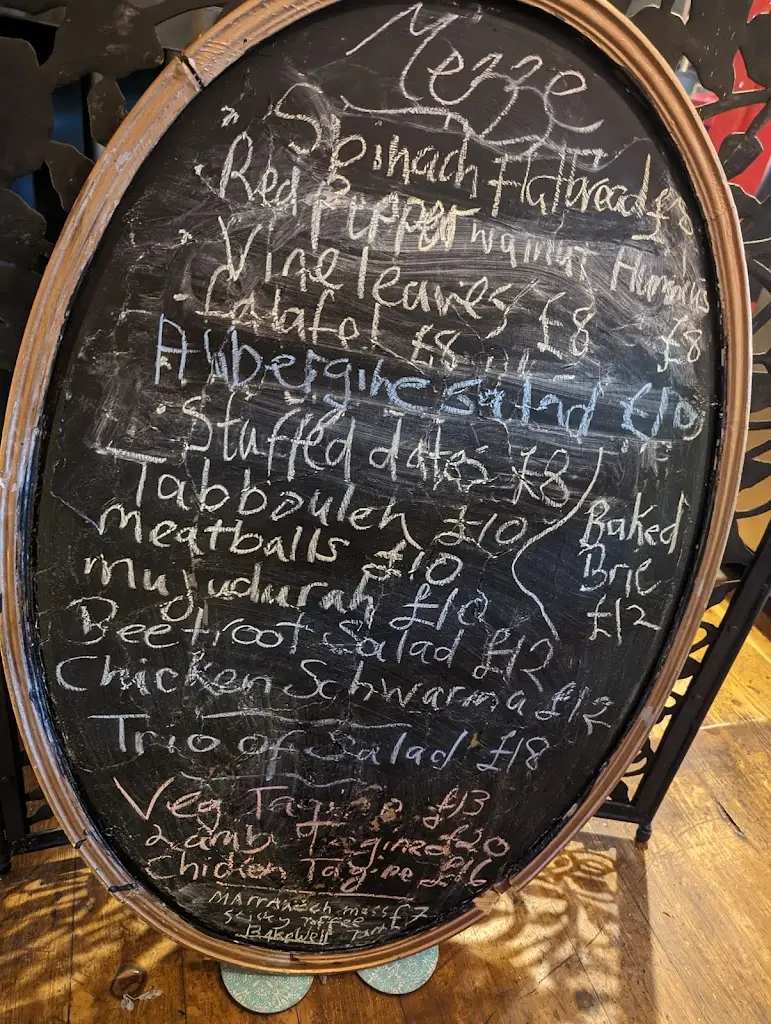 Mezze
Spinach flatbread £8
Red Pepper walnut Hummus £8
Vine leaves £8
Falafel £8
Aubergine Salad £10
Stuffed dates £8
Tabbouleh £10
Baked
Brie
£12
meatballs £10
mujudurah £10
Beetroot Salad £12
Chicken Schwarma £12
Trio of Salad £18
Veg Tagine £13
Lamb Tagine £20
Chicken Tagine £16
MARRAKECH mess £7
Sticky Toffee
BAKEWell Tart